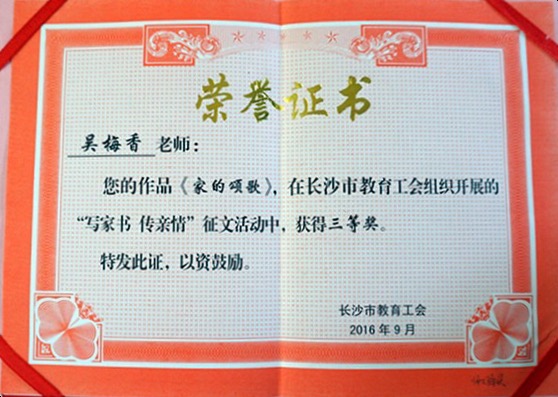 荣誉证书
吴梅香 老师：
您的作品《家的颂歌》，在长沙市教育工会组织开展的
“写家书 传亲情”征文活动中，获得三等奖。
特发此证，以资鼓励。
长沙市教育工会
2016年9月